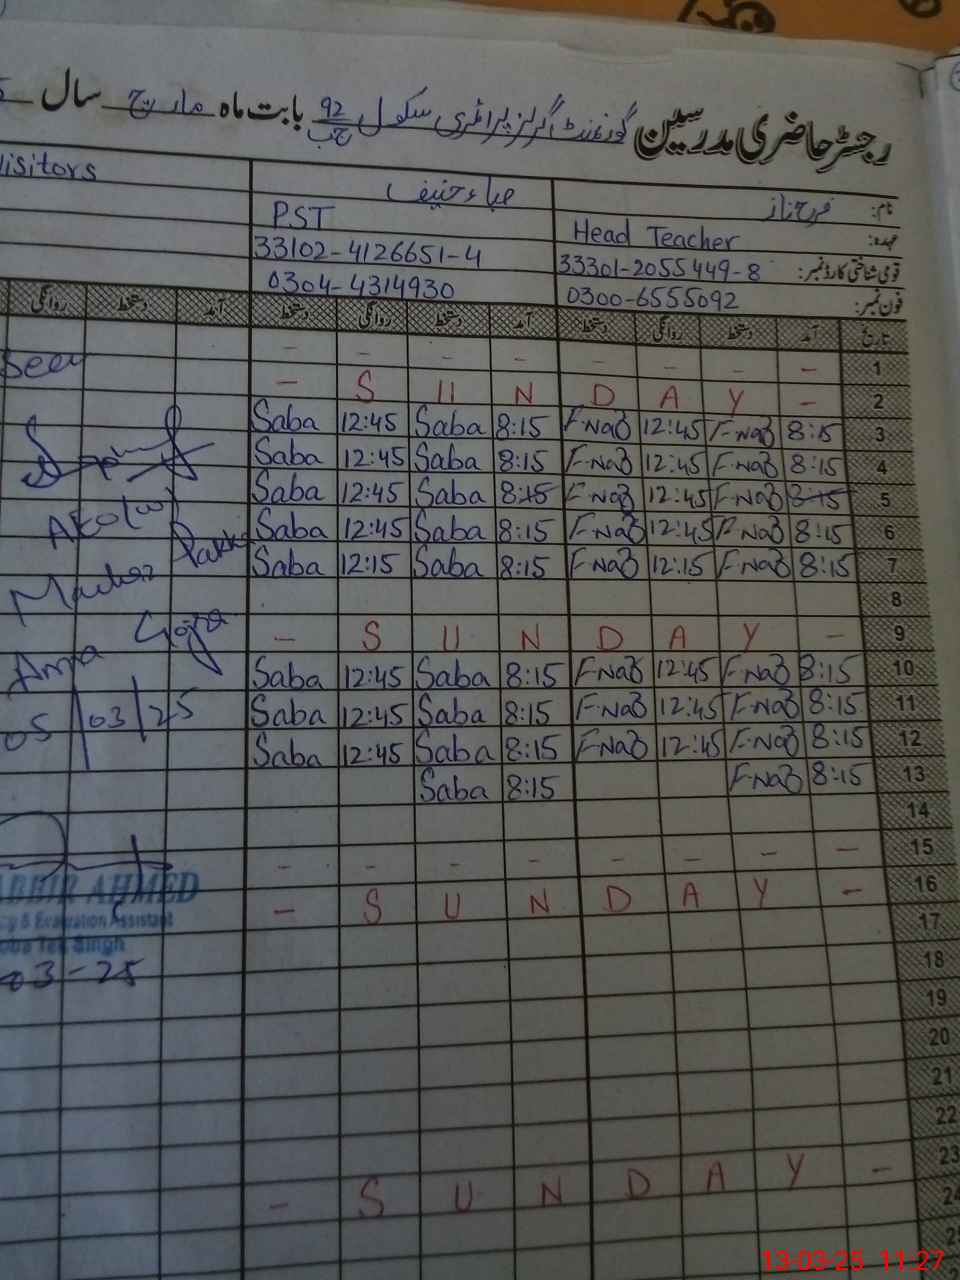 رجسٹر حاضری مدرسین گورنمنٹ گرلز پرائمری سکول 92 ج ب بابت ماہ مارچ سال
نام: فرح ناز صباء حنیف Visitors
عہدہ: Head Teacher PST
قومی شناختی کارڈ نمبر: 33301-2055449-8 33102-4126651-4
فون نمبر: 0300-6555092 0304-4314930
تاریخ آمد دستخط روانگی دستخط آمد دستخط روانگی دستخط آمد دستخط روانگی
1 - - - - - - - - Seen
2 - S U N D A Y -
3 Saba 12:45 Saba 8:15 F-Naz 12:45 F-Naz 8:15
4 Saba 12:45 Saba 8:15 F-Naz 12:45 F-Naz 8:15
5 Saba 12:45 Saba 8:15 F-Naz 12:45 F-Naz 8:15
6 Saba 12:45 Saba 8:15 F-Naz 12:45 F-Naz 8:15
7 Saba 12:15 Saba 8:15 F-Naz 12:15 F-Naz 8:15
8
9 - S U N D A Y -
10 Saba 12:45 Saba 8:15 F-Naz 12:45 F-Naz 8:15
11 Saba 12:45 Saba 8:15 F-Naz 12:45 F-Naz 8:15
12 Saba 12:45 Saba 8:15 F-Naz 12:45 F-Naz 8:15
13 Saba 8:15 F-Naz 8:15
14
15 - - - - - - - -
16 - S U N D A Y -
17
18
19
20
21
22
23 - S U N D A Y -
24
25
AEO (w)
Markaz Pakka
Anna Gojra
05/03/25
ABBIR AHMED
Evaluation Assistant
Toba Tek Singh
03-25
13-03-25 11:27